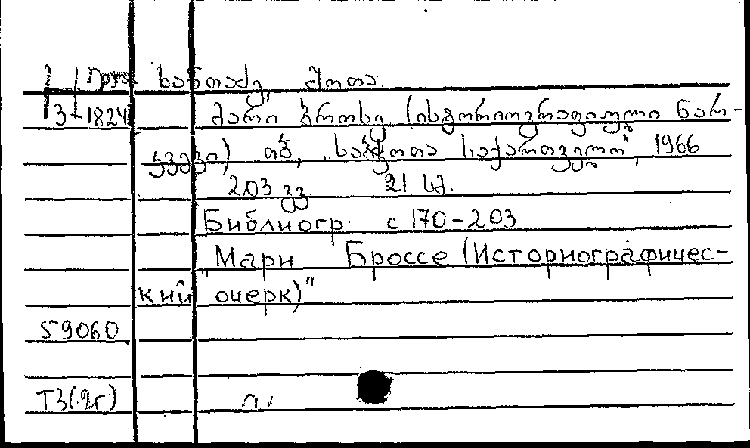 Груз ხანთაძე, შოთა
3-1824 მარი ბროსე (ისტორიოგრაფიული ნარ-
კვევი) თბ, "საბჭოთა საქართველო", 1966
203 გვ 21 სმ.
Библиогр с 170-203
"Мари Броссе (Историографичес-
кий очерк)"
59060
Т3(2г) п.